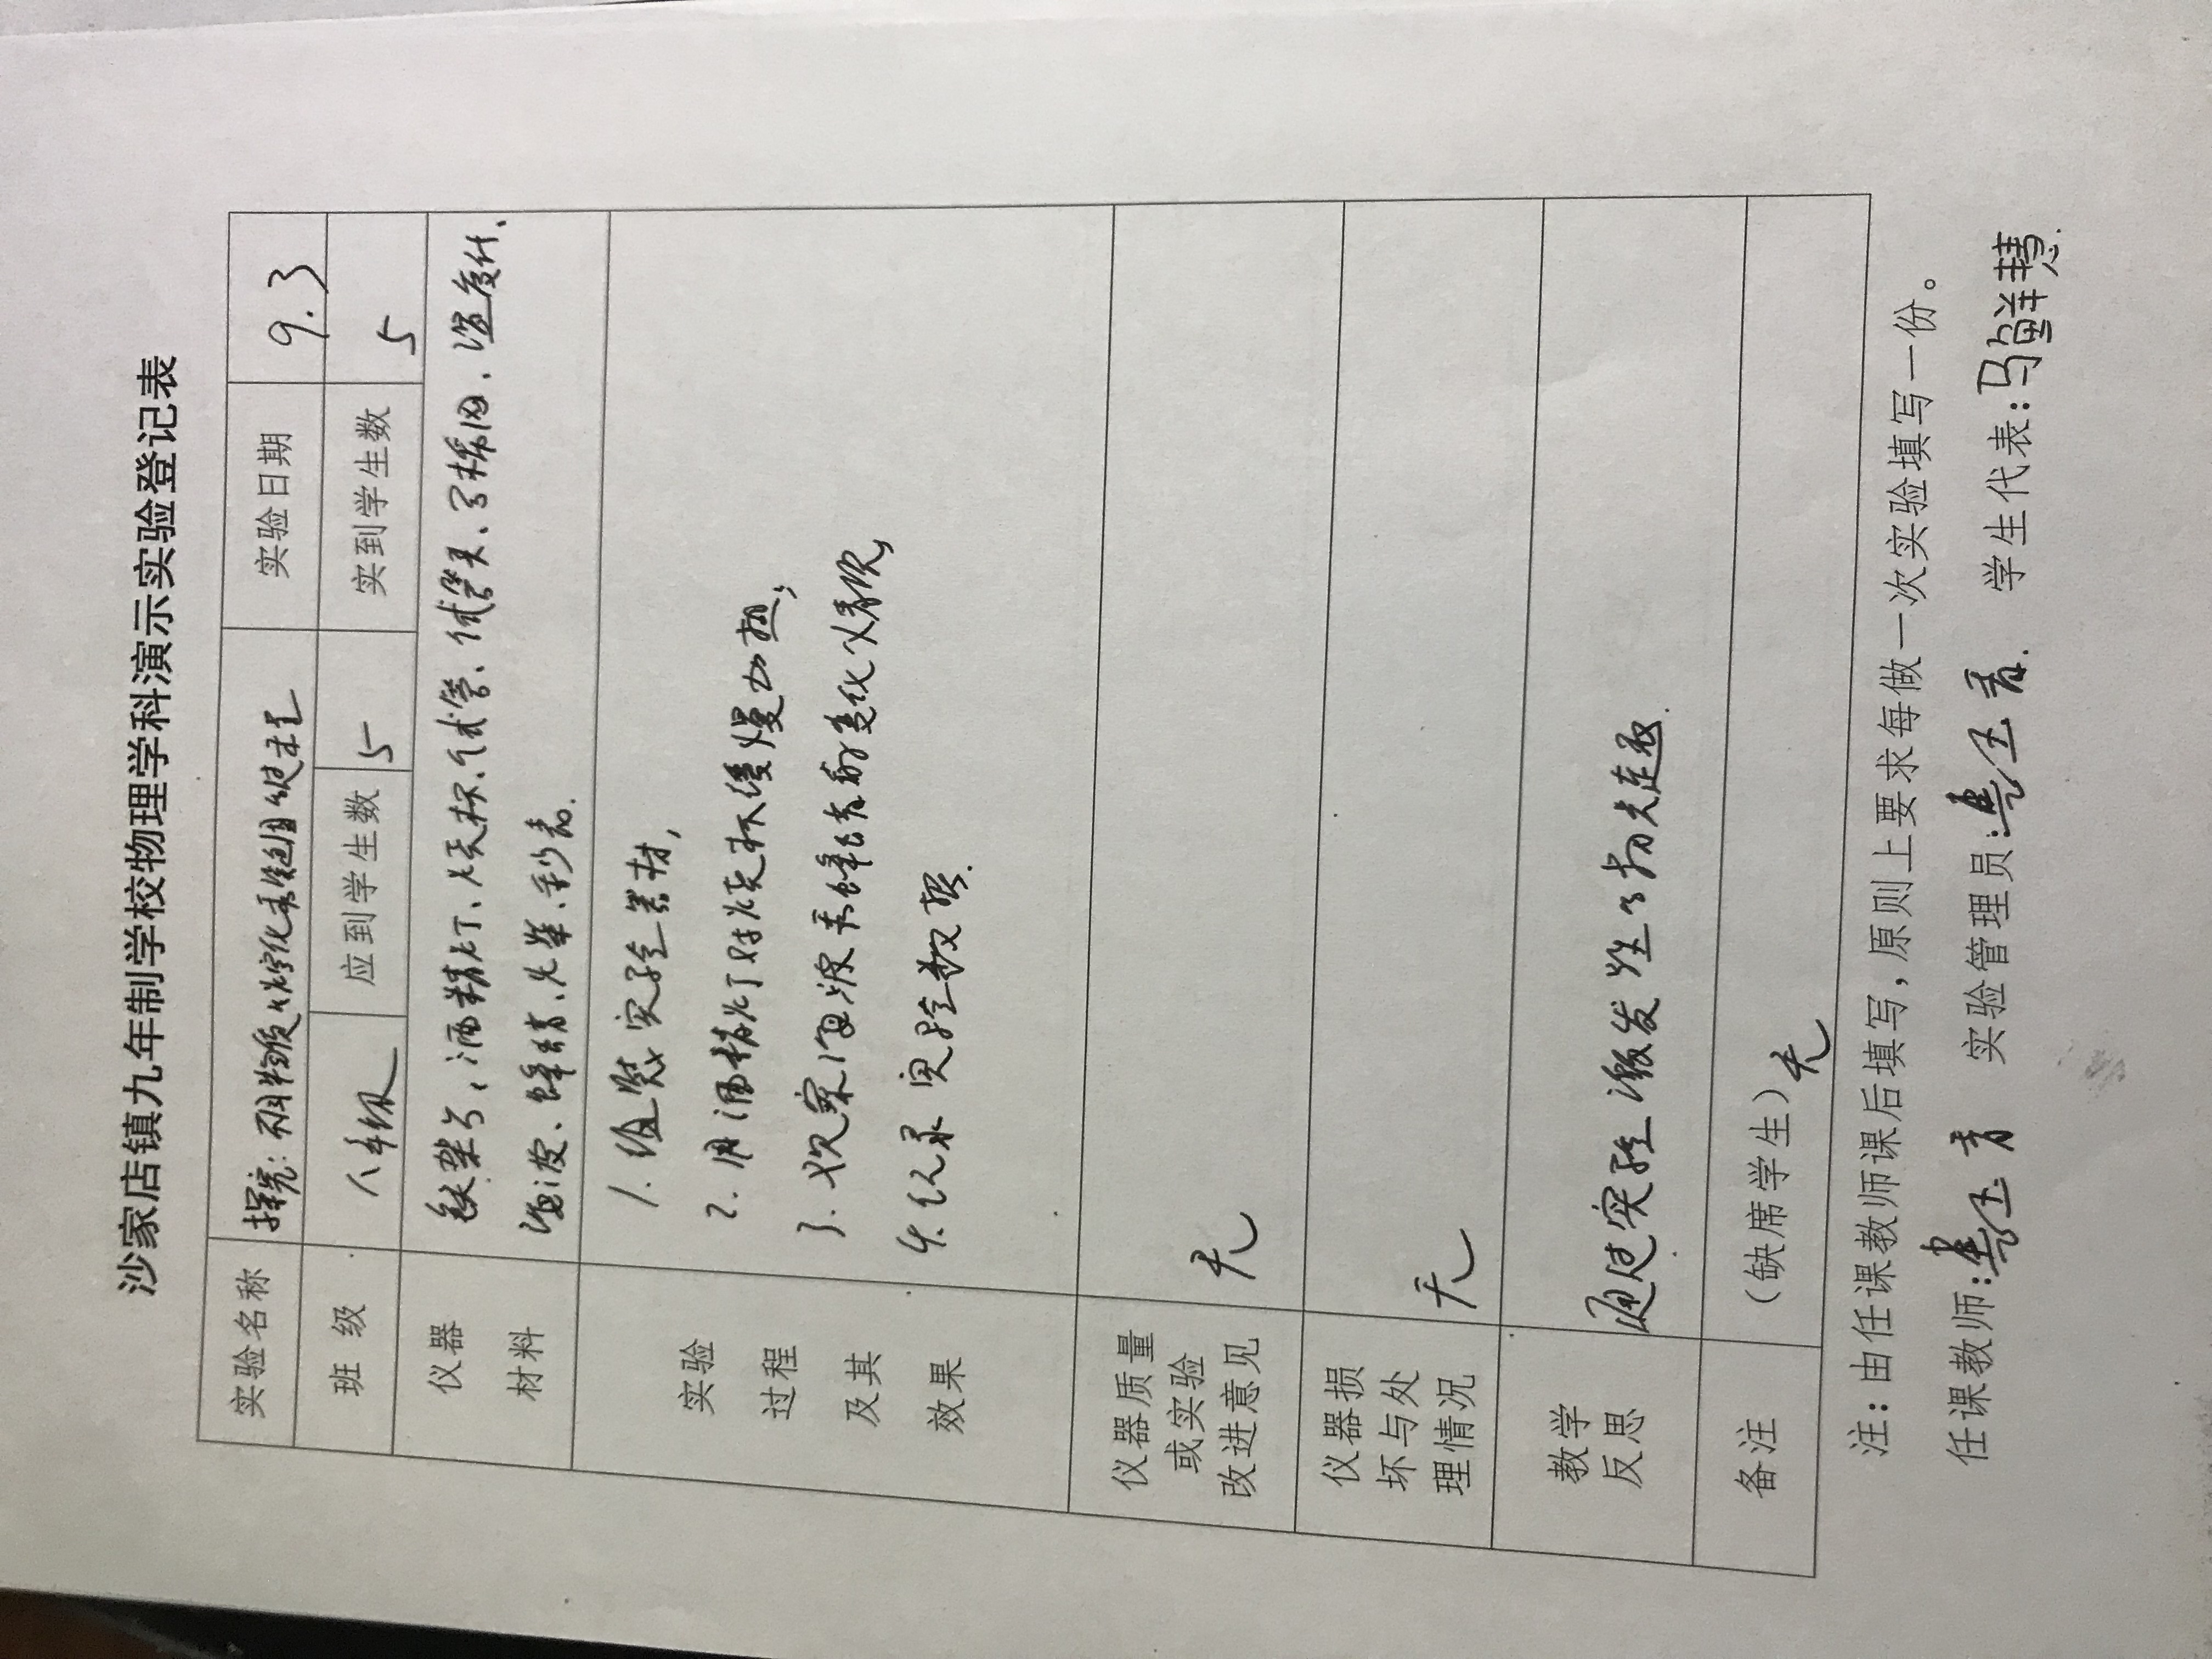 沙家店镇九年制学校物理学科演示实验登记表
实验名称 探究:不同物质熔化和凝固的过程 实验日期 9.3
班 级 八年级 应到学生数 5 实到学生数 5
仪器 铁架台、酒精灯、烧杯、试管、试管夹、石棉网、温度计、
材料 海波、蜂蜡、火柴、秒表.
实验 1. 组装实验器材,
过程 2. 用酒精灯对烧杯缓慢加热,
及其 3. 观察海波和蜂蜡的变化情况,
效果 4. 记录实验数据.
仪器质量
或实验 无
改进意见
仪器损
坏与处 无
理情况
教学 通过实验激发学生
反思
备注 (缺席学生)无
注:由任课教师课后填写,原则上要求每做一次实验填写一份。
任课教师: 实验管理员: 学生代表:马鲜慧.